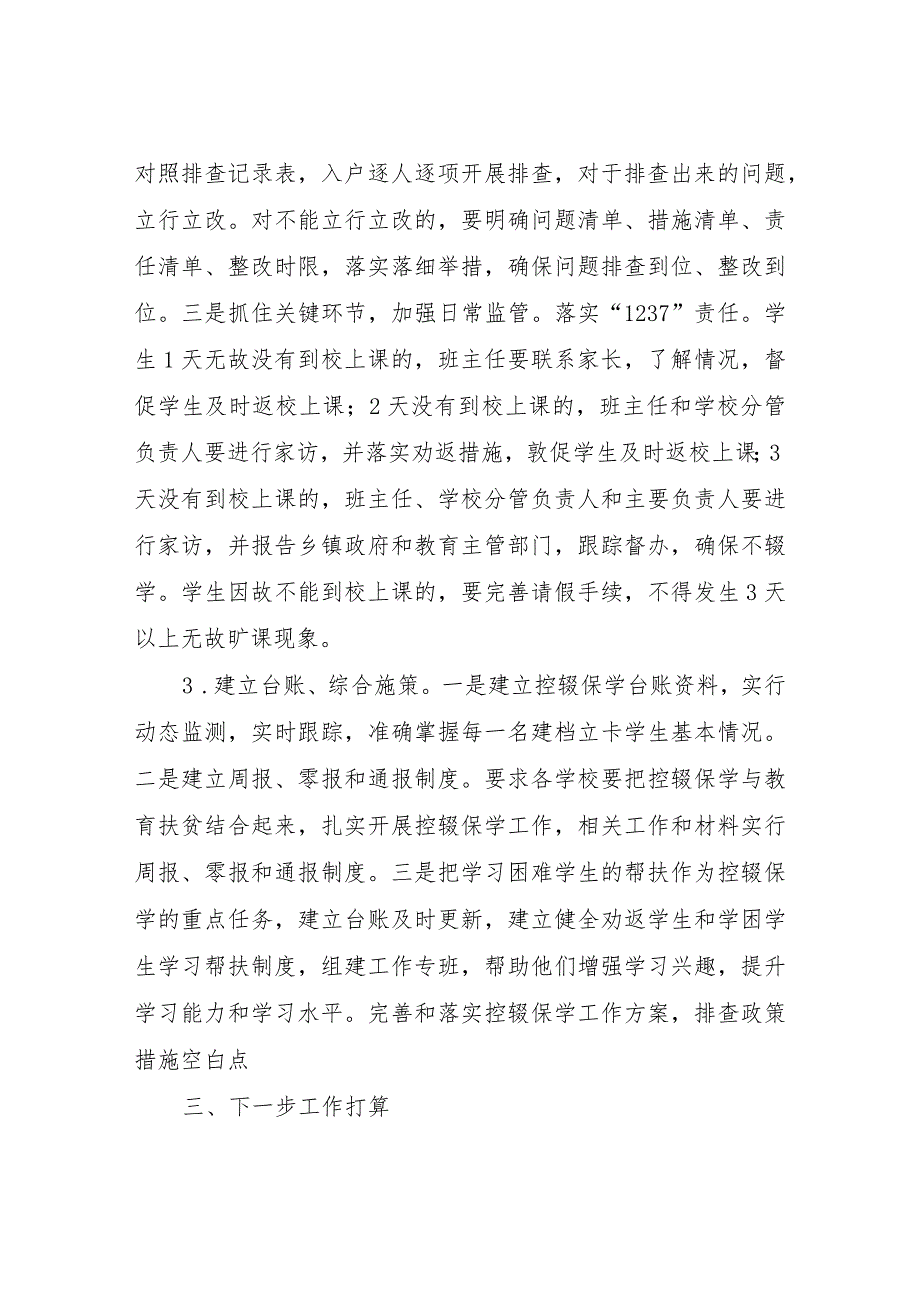 对照排查记录表，入户逐人逐项开展排查，对于排查出来的问题，
立行立改。对不能立行立改的，要明确问题清单、措施清单、责
任清单、整改时限，落实落细举措，确保问题排查到位、整改到
位。三是抓住关键环节，加强日常监管。落实“1237”责任。学
生1天无故没有到校上课的，班主任要联系家长，了解情况，督
促学生及时返校上课；2天没有到校上课的，班主任和学校分管
负责人要进行家访，并落实劝返措施，敦促学生及时返校上课；3
天没有到校上课的，班主任、学校分管负责人和主要负责人要进
行家访，并报告乡镇政府和教育主管部门，跟踪督办，确保不辍
学。学生因故不能到校上课的，要完善请假手续，不得发生3天
以上无故旷课现象。
3.建立台账、综合施策。一是建立控辍保学台账资料，实行
动态监测，实时跟踪，准确掌握每一名建档立卡学生基本情况。
二是建立周报、零报和通报制度。要求各学校要把控辍保学与教
育扶贫结合起来，扎实开展控辍保学工作，相关工作和材料实行
周报、零报和通报制度。三是把学习困难学生的帮扶作为控辍保
学的重点任务，建立台账及时更新，建立健全劝返学生和学困学
生学习帮扶制度，组建工作专班，帮助他们增强学习兴趣，提升
学习能力和学习水平。完善和落实控辍保学工作方案，排查政策
措施空白点
三、下一步工作打算